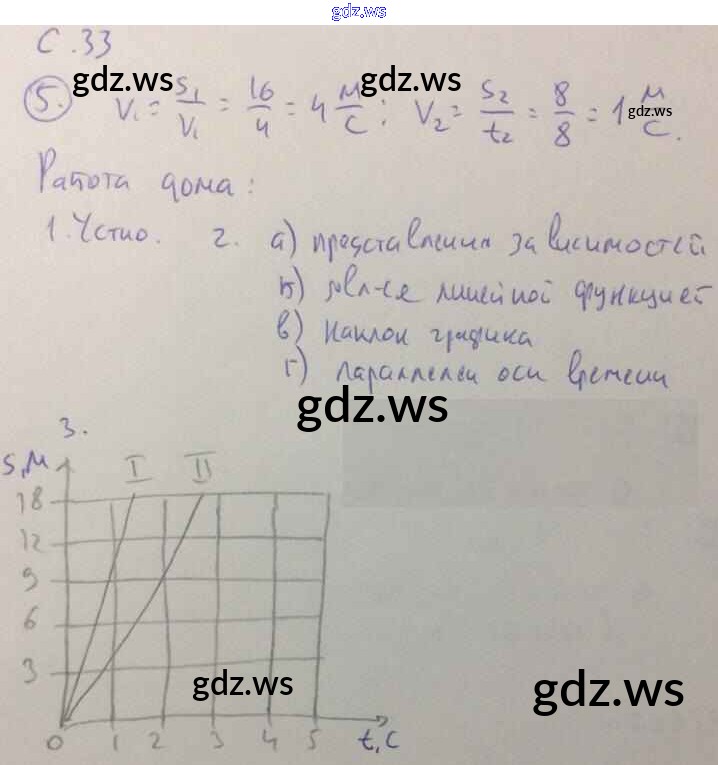 gdz.ws
С.33
gdz.ws gdz.ws
5. V₁ = S₁/V₁ = 16/4 = 4 м/с; V₂ = S₂/t₂ = 8/8 = 1 м/с.
gdz.ws
Работа дома:
1. Устно. 2. а) представления зависимостей
б) явл-ся линейной функцией
в) наклон графика
г) параллелен оси времени
gdz.ws
3.
S, м I II
18
12
9
6
3
gdz.ws gdz.ws
0 1 2 3 4 5 t, с